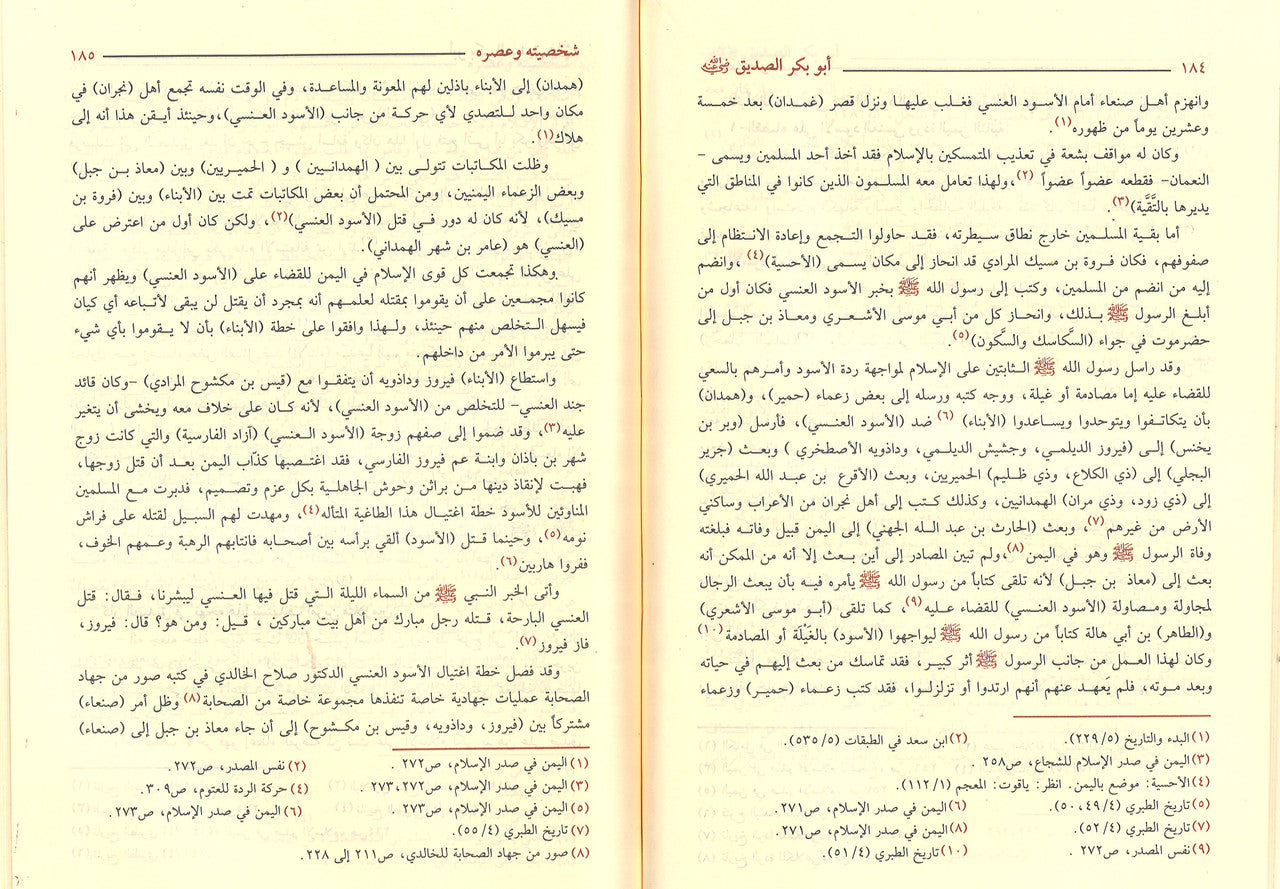 ١٨٤ أبو بكر الصديق رضي الله عنه
وانهزم أهل صنعاء أمام الأسود العنسي فغلب عليها ونزل قصر (غمدان) بعد خمسة
وعشرين يوماً من ظهوره(١).
وكان له مواقف بشعة في تعذيب المتمسكين بالإسلام فقد أخذ أحد المسلمين ويسمى –
النعمان– فقطعه عضواً عضواً (٢)،ولهذا تعامل معه المسلمون الذين كانوا في المناطق التي
يديرها بالتَّقيَّة)(٣).
أما بقية المسلمين خارج نطاق سيطرته، فقد حاولوا التجمع وإعادة الانتظام إلى
صفوفهم، فكان فروة بن مسيك المرادي قد انحاز إلى مكان يسمى (الأحسية)(٤) ،وانضم
إليه من انضم من المسلمين، وكتب إلى رسول الله ﷺ بخبر الأسود العنسي فكان أول من
أبلغ الرسول ﷺ بذلك، وانحاز كل من أبي موسى الأشعري ومعاذ بن جبل إلى
حضرموت في جواء (السَّكاسك والسَّكون)(٥).
وقد راسل رسول الله ﷺ الثابتين على الإسلام لمواجهة ردة الأسود وأمرهم بالسعي
للقضاء عليه إما مصادمة أو غيلة، ووجه كتبه ورسله إلى بعض زعماء (حمير)، و(همدان)
بأن يتكاتفوا ويتوحدوا ويساعدوا (الأبناء) (٦) ضد (الأسود العنسي)، فأرسل (وبر بن
يخنس) إلى (فيروز الديلمي، وجشيش الديلمي، وداذويه الأصطخري ) وبعث (جرير
البجلي) إلى (ذي الكلاع، وذي ظليم) الحميريين، وبعث (الأقرع بن عبد الله الحميري)
إلى (ذي زود، وذي مران) الهمدانيين، وكذلك كتب إلى أهل نجران من الأعراب وساكني
الأرض من غيرهم(٧)، وبعث (الحارث بن عبد الله الجهني) إلى اليمن قبيل وفاته فبلغته
وفاة الرسول ﷺ وهو في اليمن(٨)،ولم تبين المصادر إلى أين بعث إلا أنه من الممكن أنه
بعث إلى (معاذ بن جبل) لأنه تلقى كتاباً من رسول الله ﷺ يأمره فيه بأن يبعث الرجال
لمجاولة ومصاولة (الأسود العنسي) للقضاء عليه(٩)، كما تلقى (أبو موسى الأشعري)
و(الطاهر) بن أبي هالة كتاباً من رسول الله ﷺ ليواجهوا (الأسود) بالغَيْلَة أو المصادمة(١٠)
وكان لهذا العمل من جانب الرسول ﷺ أثر كبير، فقد تماسك من بعث إليهم في حياته
وبعد موته، فلم يَعهد عنهم أنهم ارتدوا أو تزلزلوا، فقد كتب زعماء (حمير) وزعماء
(١) البدء والتاريخ (٢٢٩/٥). (٢)ابن سعد في الطبقات (٥٣٥/٥).
(٣)اليمن في صدر الإسلام للشجاع، ص٢٥٨.
(٤) الأحسية: موضع باليمن. انظر: ياقوت: المعجم (١١٢/١).
(٥) تاريخ الطبري (٥٠،٤٩/٤). (٦)اليمن في صدر الإسلام، ص٢٧١.
(٧) تاريخ الطبري (٥٢/٤). (٨)اليمن في صدر الإسلام، ص٢٧١.
(٩) نفس المصدر، ص٢٧٢ . (١٠)تاريخ الطبري (٥١/٤).
شخصيته وعصره ١٨٥
(همدان) إلى الأبناء باذلين لهم المعونة والمساعدة، وفي الوقت نفسه تجمع أهل (نجران) في
مكان واحد للتصدي لأي حركة من جانب (الأسود العنسي)،وحينئذ أيقن هذا أنه إلى
هلاك(١).
وظلت المكاتبات تتولى بين ( الهمدانيين ) و ( الحميريين) وبين (معاذ بن جبل)
وبعض الزعماء اليمنيين، ومن المحتمل أن بعض المكاتبات تمت بين (الأبناء) وبين (فروة بن
مسيك)، لأنه كان له دور في قتل (الأسود العنسي)(٢)، ولكن كان أول من اعترض على
(العنسي) هو (عامر بن شهر الهمداني).
وهكذا تجمعت كل قوى الإسلام في اليمن للقضاء على (الأسود العنسي) ويظهر أنهم
كانوا مجمعين على أن يقوموا بمقتله لعلمهم أنه بمجرد أن يقتل لن يبقى لأتباعه أي كيان
فيسهل التخلص منهم حينئذ، ولهذا وافقوا على خطة (الأبناء) بأن لا يقوموا بأي شيء
حتى يبرموا الأمر من داخلهم.
واستطاع (الأبناء) فيروز وداذويه أن يتفقوا مع (قيس بن مكشوح المرادي) –وكان قائد
جند العنسي– للتخلص من (الأسود العنسي)، لأنه كان على خلاف معه ويخشى أن يتغير
عليه(٣)، وقد ضموا إلى صفهم زوجة (الأسود العنسي) (آزاد الفارسية) والتي كانت زوج
شهر بن باذان وابنة عم فيروز الفارسي، فقد اغتصبها كذّاب اليمن بعد أن قتل زوجها،
فهبت لإنقاذ دينها من براثن وحوش الجاهلية بكل عزم وتصميم، فدبرت مع المسلمين
المناوئين للأسود خطة اغتيال هذا الطاغية المتأله(٤)، ومهدت لهم السبيل لقتله على فراش
نومه(٥)، وحينما قتل (الأسود) ألقي برأسه بين أصحابه فانتابهم الرهبة وعمهم الخوف،
ففروا هاربين(٦).
وأتى الخبر النبي ﷺ من السماء الليلة التي قتل فيها العنسي ليبشرنا، فقال: قتل
العنسي البارحة، قتله رجل مبارك من أهل بيت مباركين ، قيل: ومن هو؟ قال: فيروز،
فاز فيروز(٧).
وقد فصل خطة اغتيال الأسود العنسي الدكتور صلاح الخالدي في كتبه صور من جهاد
الصحابة عمليات جهادية خاصة تنفذها مجموعة خاصة من الصحابة(٨) وظل أمر (صنعاء)
مشتركاً بين (فيروز، وداذويه، وقيس بن مكشوح) إلى أن جاء معاذ بن جبل إلى (صنعاء)
(١) اليمن في صدر الإسلام، ص٢٧٢ . (٢) نفس المصدر، ص٢٧٢.
(٣) اليمن في صدر الإسلام، ص٢٧٣،٢٧٢ . (٤) حركة الردة للعتوم، ص٣٠٩.
(٥) اليمن في صدر الإسلام، ص٢٧٣ . (٦) اليمن في صدر الإسلام، ص٢٧٣.
(٧) تاريخ الطبري (٥٥/٤).
(٨) صور من جهاد الصحابة للخالدي، ص٢١١ إلى ٢٢٨.